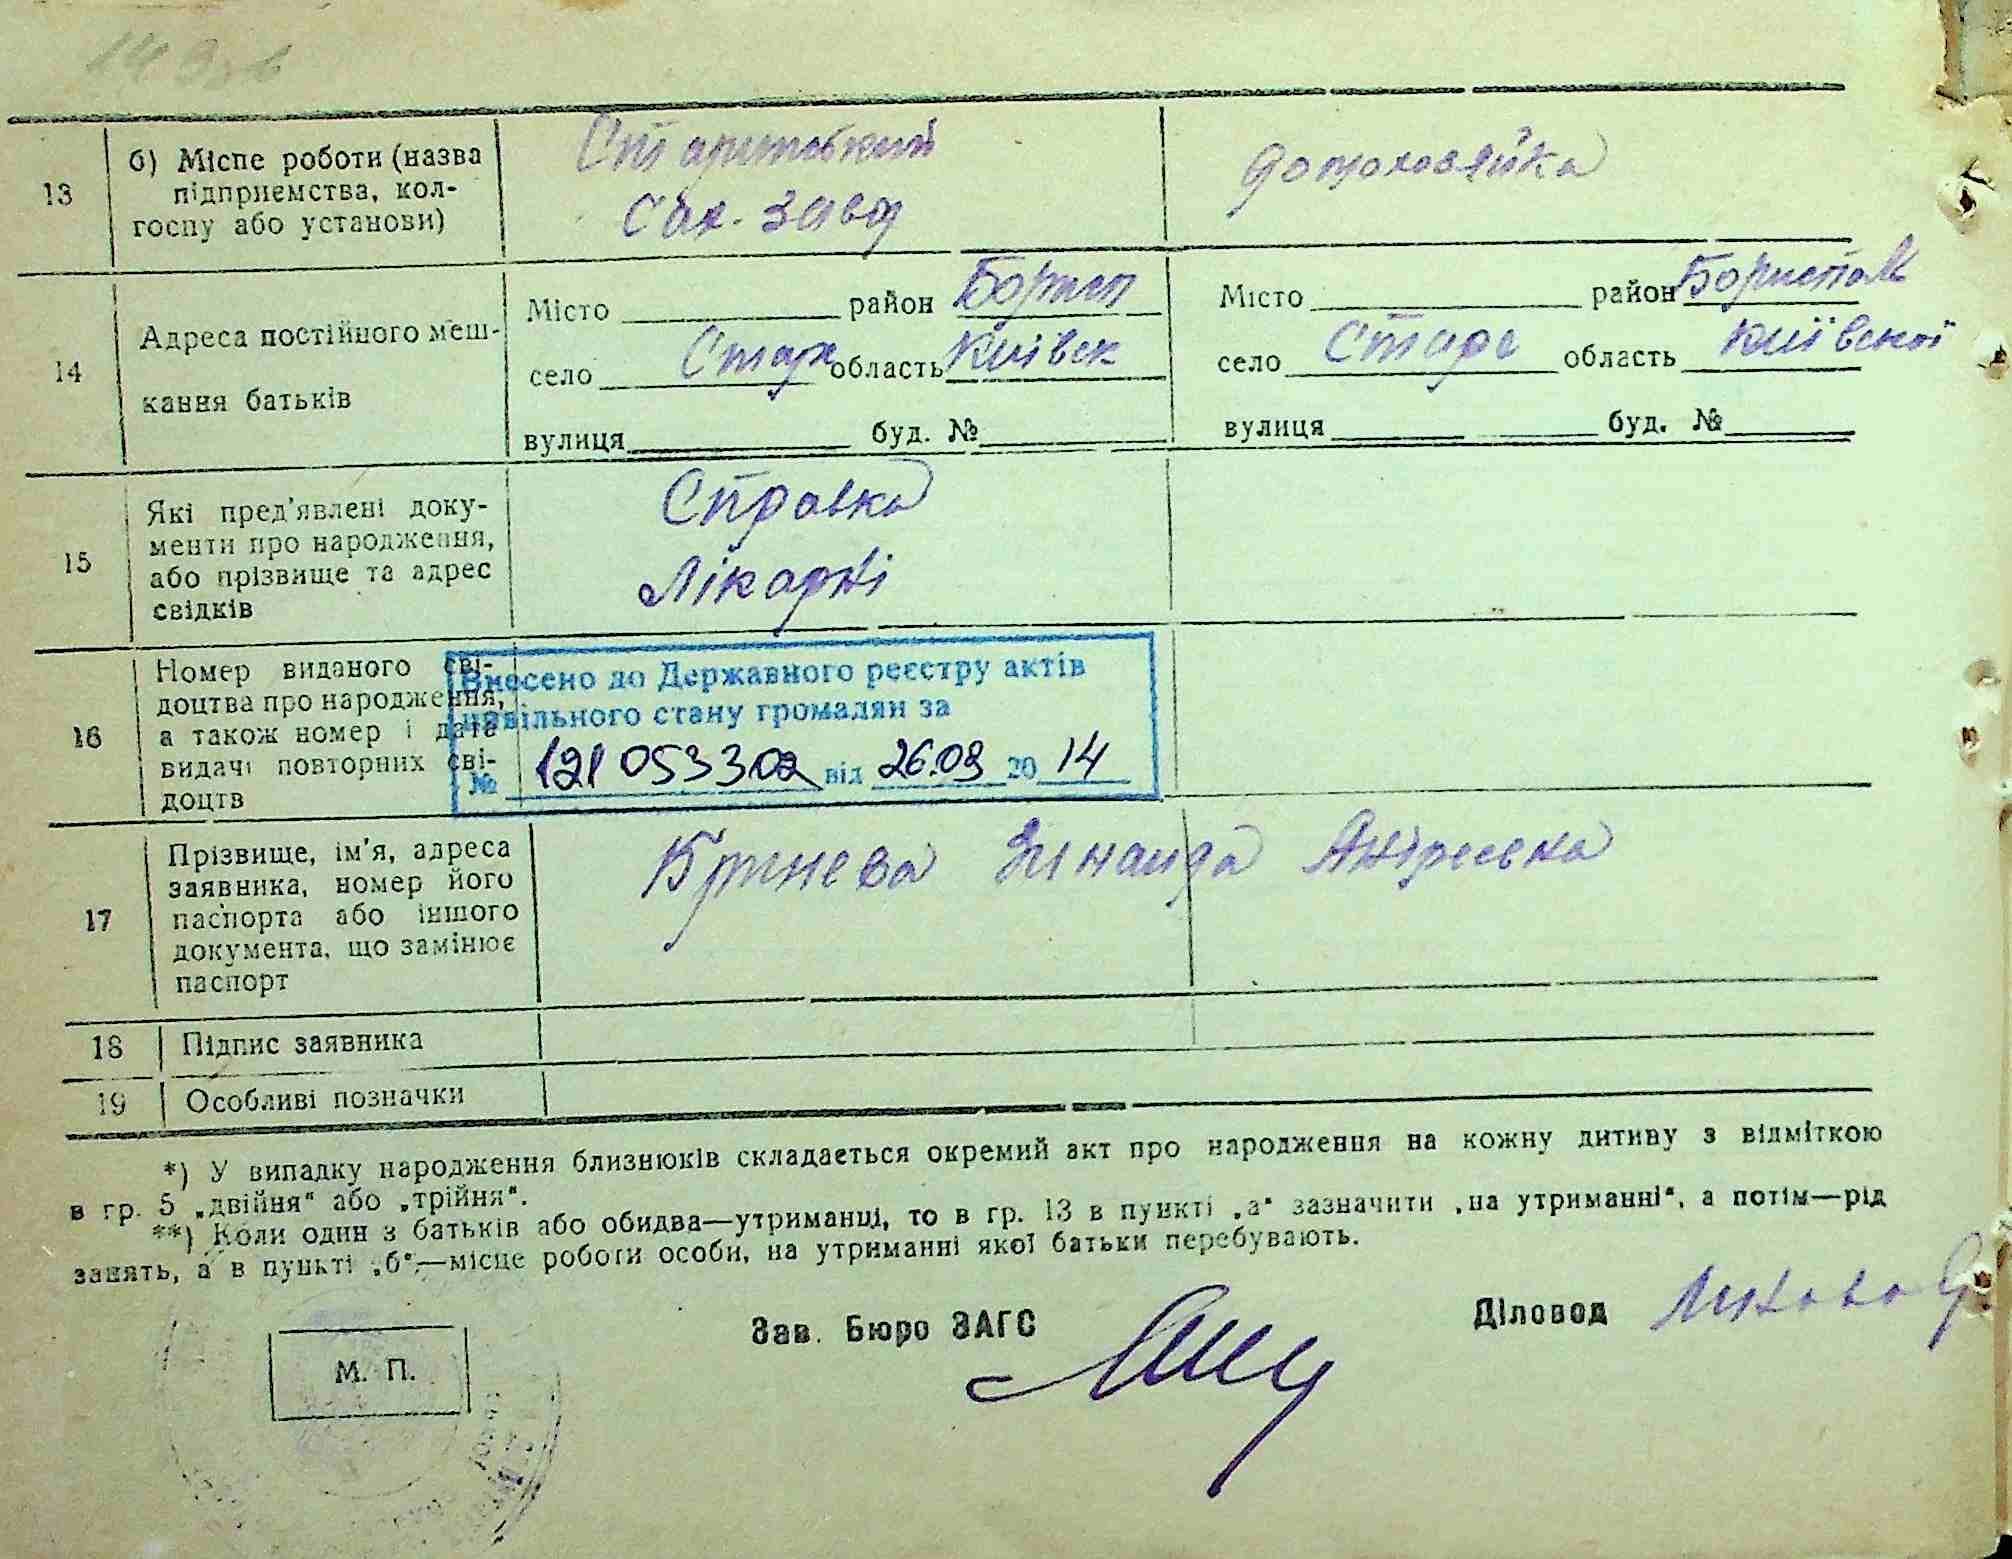 13
б) Місце роботи (назва
підприємства, кол-
госпу або установи)
Сах. завод
домохозяйка
14
Адреса постійного меш-
кання батьків
Місто район Борисп
село Стар область Київск
вулиця буд. №
Місто район Борисполь
село Старе область Київської
вулиця буд. №
15
Які пред'явлені доку-
менти про народження,
або прізвище та адрес
свідків
Справка
Лікарні
16
Номер виданого сві-
доцтва про народження,
а також номер і дата
видачі повторних сві-
доцтв
Внесено до Державного реєстру актів
цивільного стану громадян за
№ 121 053302 від 26.09 2014
17
Прізвище, ім'я, адреса
заявника, номер його
паспорта або іншого
документа, що замінює
паспорт
Зинаида Андреевна
18 Підпис заявника
19 Особливі позначки
*) У випадку народження близнюків складається окремий акт про народження на кожну дитину з відміткою
в гр. 5 „двійня" або „трійня".
**) Коли один з батьків або обидва—утриманці, то в гр. 13 в пункті „а" зазначити „на утриманні", а потім—рід
занять, а в пункті „б"—місце роботи особи, на утриманні якої батьки перебувають.
М. П.
Зав. Бюро ЗАГС
Діловод